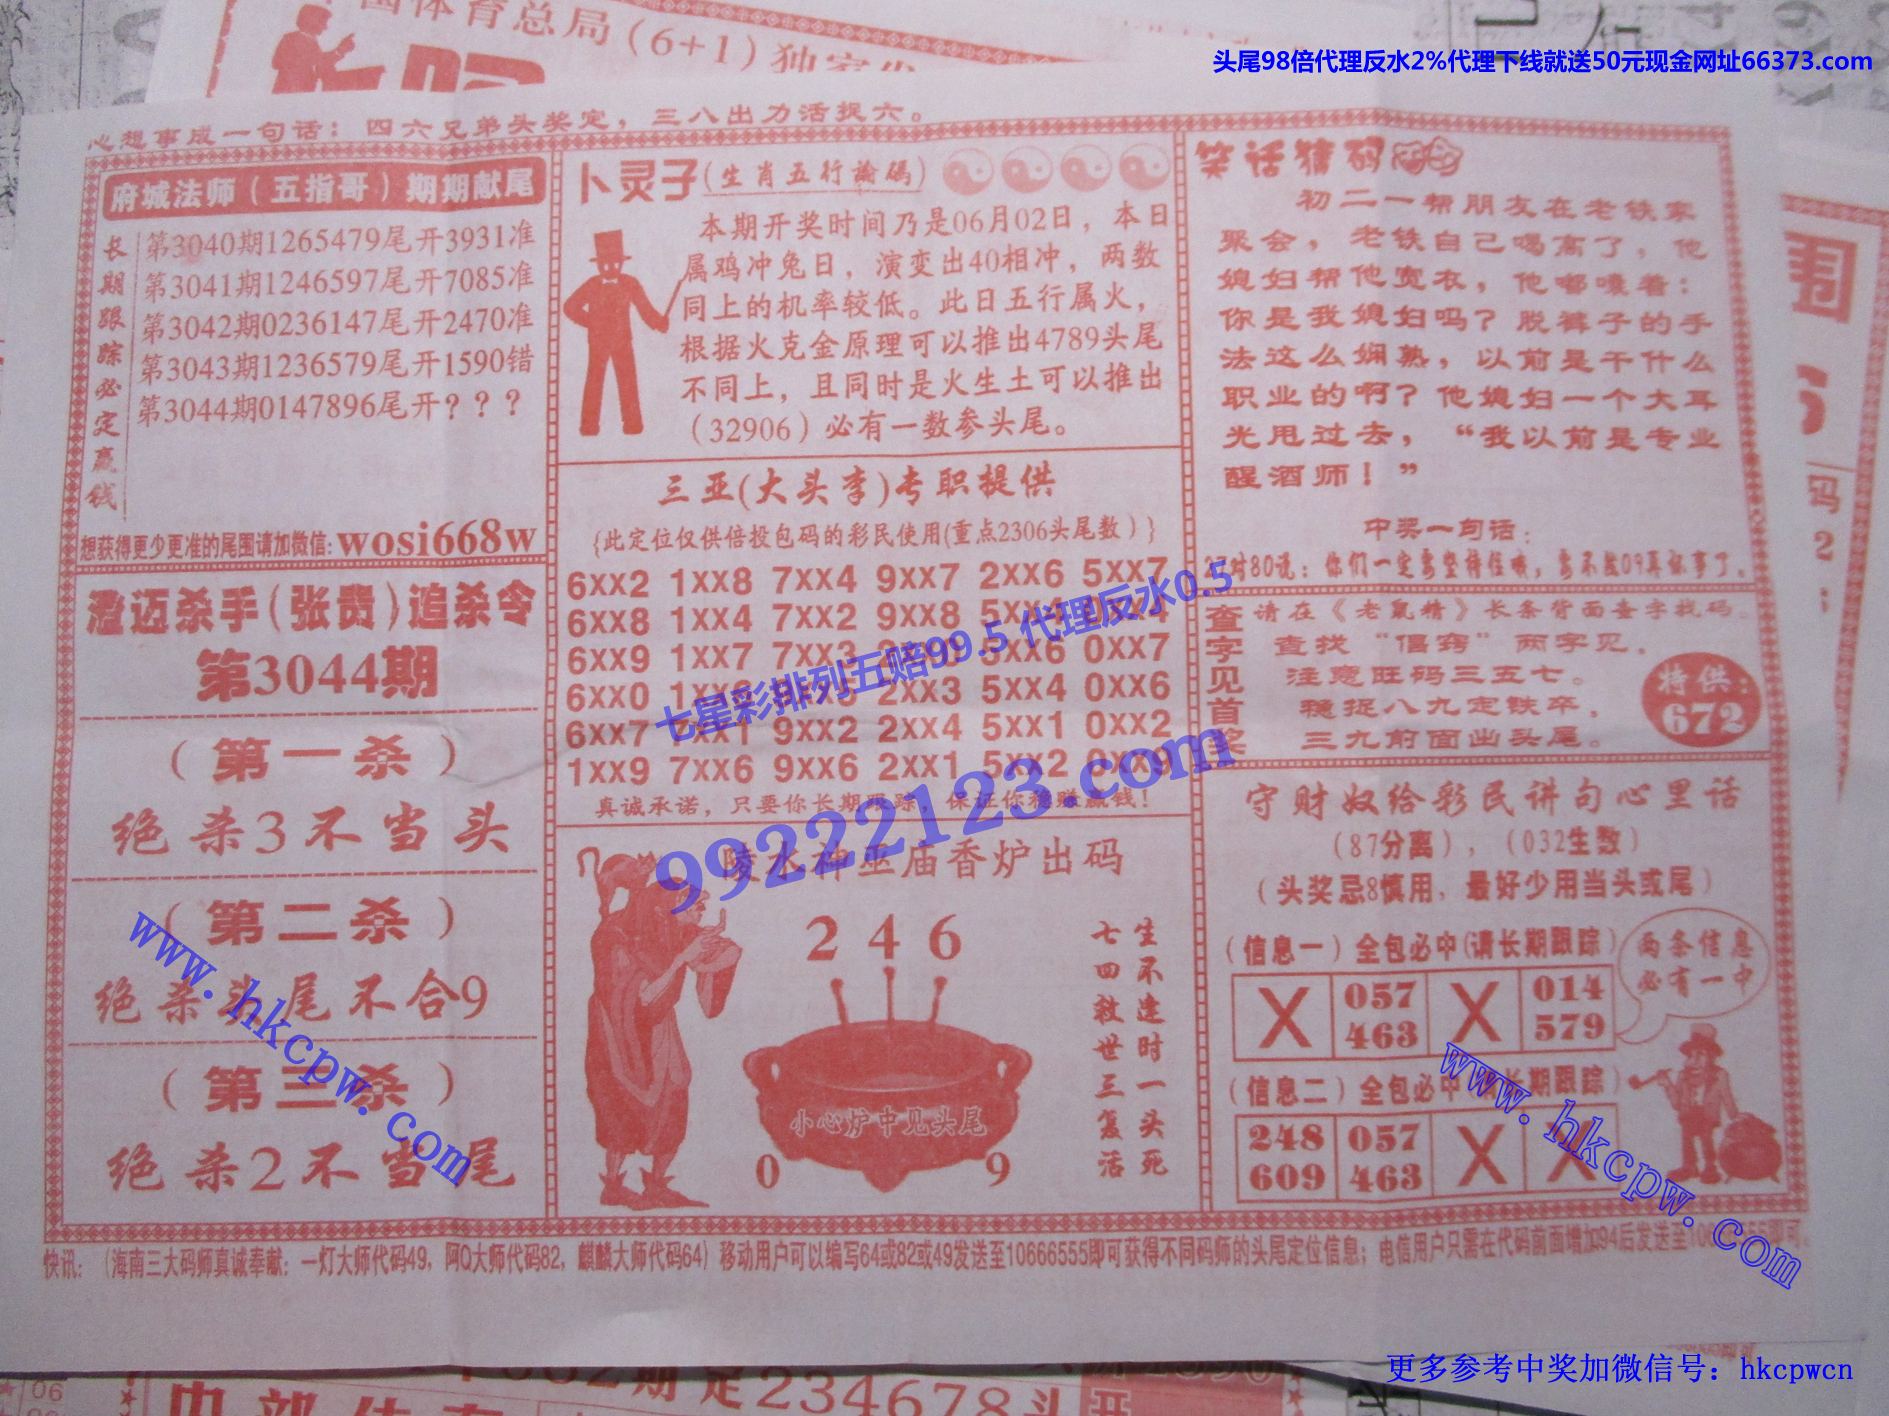 国体育总局(6+1)独家发
头尾98倍代理反水2%代理下线就送50元现金网址66373.com
心想事成一句话：四六兄弟头奖定，三八出力活捉六。
府城法师（五指哥）期期献尾
长期跟踪必定赢钱
第3040期1265479尾开3931准
第3041期1246597尾开7085准
第3042期0236147尾开2470准
第3043期1236579尾开1590错
第3044期0147896尾开？？？
想获得更少更准的尾围请加微信:wosi668w
澄迈杀手(张贵)追杀令
第3044期
（第一杀）
绝杀3不当头
（第二杀）
绝杀头尾不合9
（第三杀）
绝杀2不当尾
卜灵子(生肖五行论码)
本期开奖时间乃是06月02日，本日
属鸡冲兔日，演变出40相冲，两数
同上的机率较低。此日五行属火，
根据火克金原理可以推出4789头尾
不同上，且同时是火生土可以推出
（32906）必有一数参头尾。
三亚(大头李)专职提供
{此定位仅供倍投包码的彩民使用(重点2306头尾数）}
6XX2 1XX8 7XX4 9XX7 2XX6 5XX7
6XX8 1XX4 7XX2 9XX8 5XX4
6XX9 1XX7 7XX3 5XX6 0XX7
6XX0 2XX3 5XX4 0XX6
6XX7 9XX2 2XX4 5XX1 0XX2
1XX9 7XX6 9XX6 2XX1 5XX2 0XX9
真诚承诺，只要你长期跟踪，保证你稳赚赢钱！
七星彩排列五赔99.5 代理反水0.5
99222123.com
陵水神巫庙香炉出码
2 4 6
小心炉中见头尾
0 9
生不逢时一头死
七四救世三复活
笑话猜码
初二一帮朋友在老铁家
聚会，老铁自己喝高了，他
媳妇帮他宽衣，他嘟囔着：
你是我媳妇吗？脱裤子的手
法这么娴熟，以前是干什么
职业的啊？他媳妇一个大耳
光甩过去，“我以前是专业
醒酒师！”
中奖一句话：
对80说：你们一定要坚持住哦，要不然09真坏事了。
查字见首奖
请在《老鼠精》长条背面查字找码。
查找“倡窍”两字见，
注意旺码三五七。
稳捉八九定铁卒，
三九前面出头尾。
特供：
672
守财奴给彩民讲句心里话
（87分离），（032生数）
（头奖忌8慎用，最好少用当头或尾）
（信息一）全包必中(请长期跟踪)
X 057 463 X 014 579
两条信息
必有一中
（信息二）全包必中(请长期跟踪)
248 609 057 463 X X
www.hkcpw.com
www.hkcpw.com
快讯：（海南三大码师真诚奉献：一灯大师代码49，阿Q大师代码82，麒麟大师代码64）移动用户可以编写64或82或49发送至10666555即可获得不同码师的头尾定位信息；电信用户只需在代码前面增加94后发送至10666555即可。
期定234678头
更多参考中奖加微信号：hkcpwcn